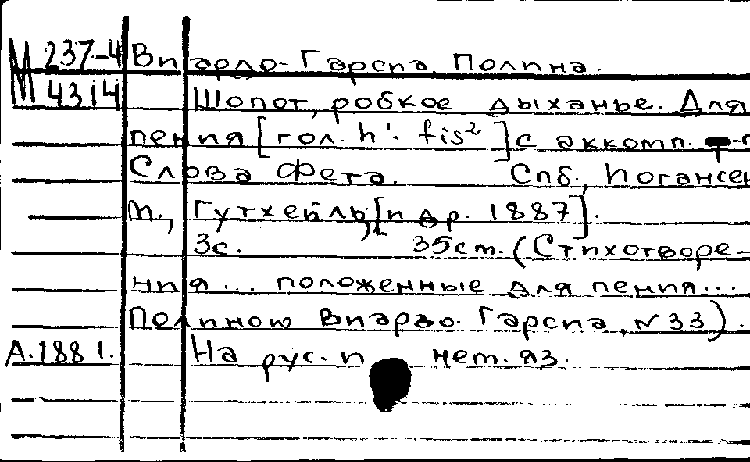 М 237-4 Виардо-Гарсиа Полина.
М 4314 Шопот, робкое дыханье. Для
пения [гол. h¹. fis²] с аккомп.
Слова Фета. Спб., Иогансен
М., Гутхейль, [ц. др. 1887].
3с. 35 cm. (Стихотворе-
ния... положенные для пения...
Полиною Виардо-Гарсиа, N 33).
А.1881. На рус. и нем. яз.